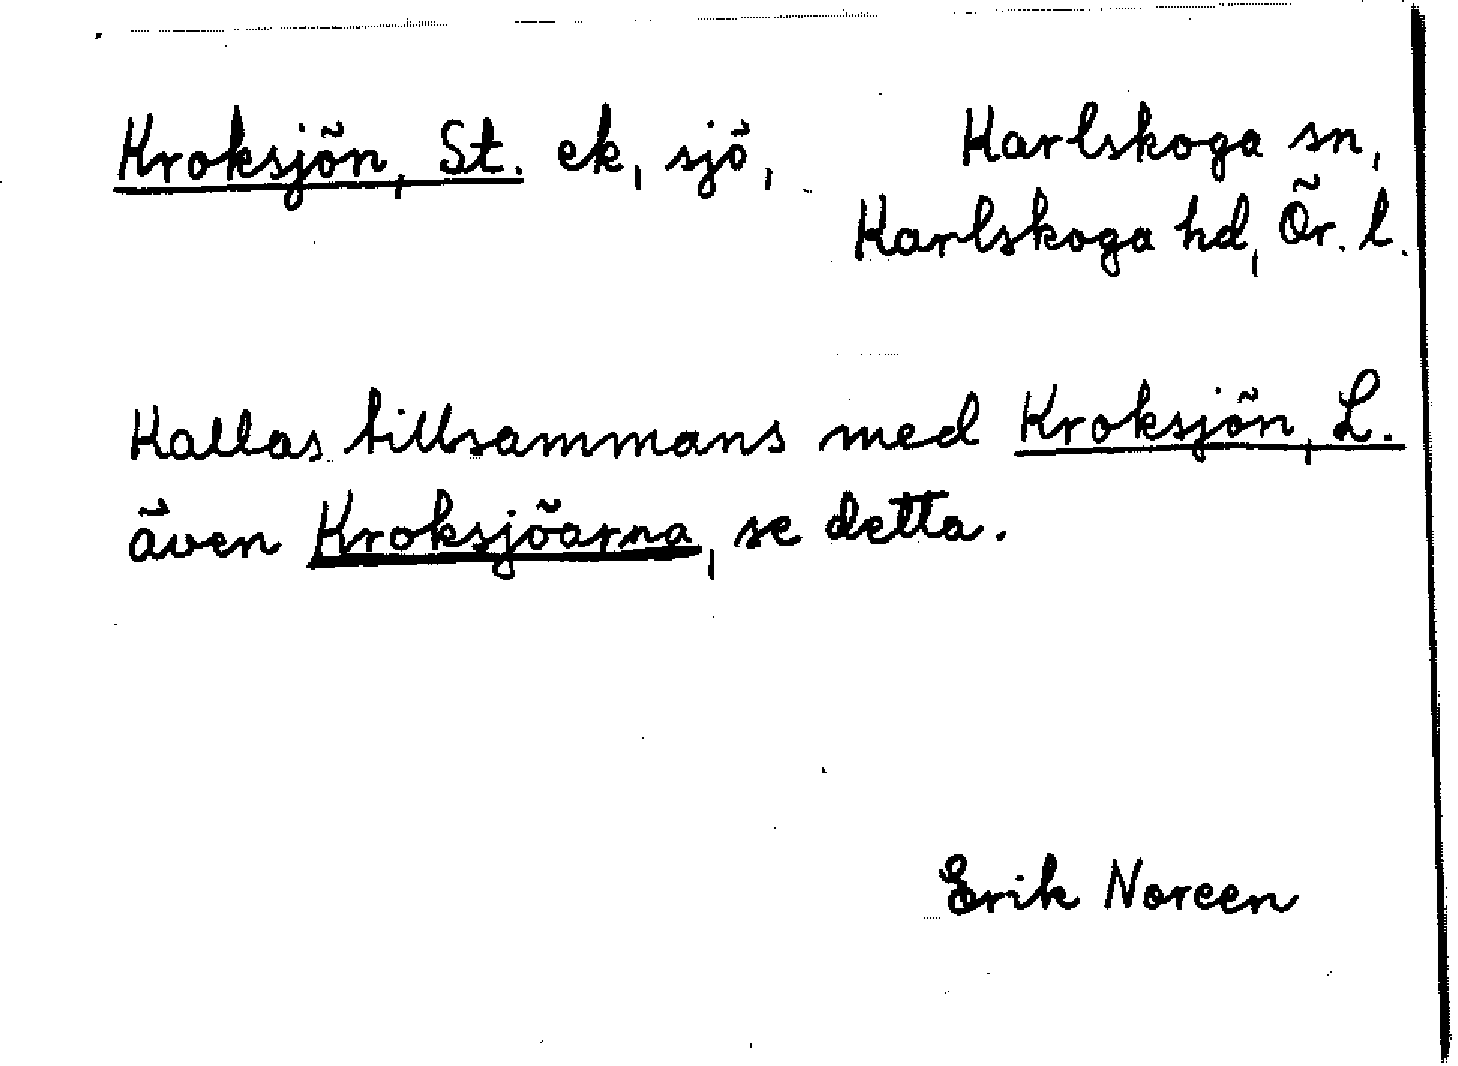 Kroksjön, St. ek, sjö, Karlskoga sn,
Karlskoga hd, Ör. l.
Kallas tillsammans med Kroksjön, L.
även Kroksjöarna, se detta.
Erik Noreen